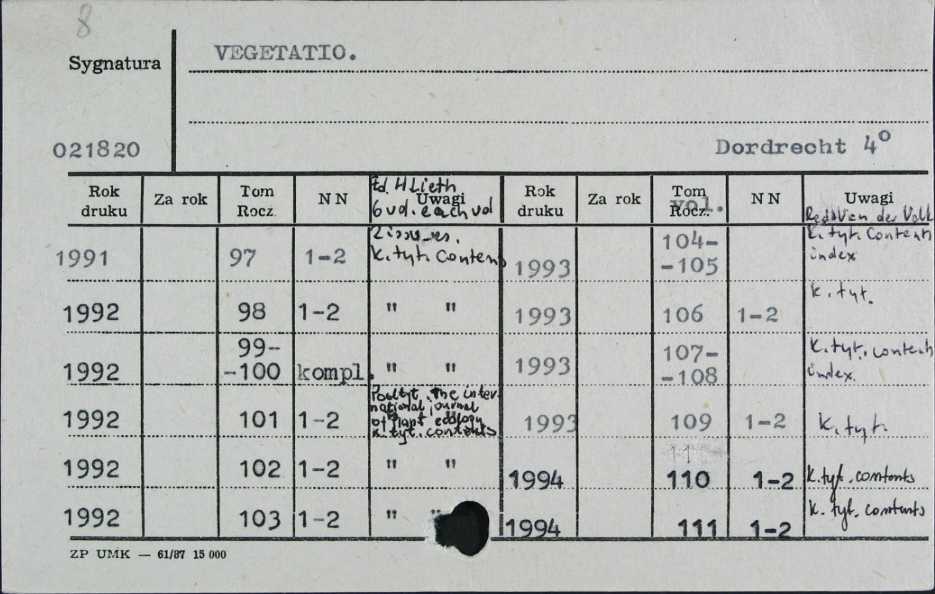 8
Sygnatura
VEGETATIO.
021820
Dordrecht 4º
Rok druku Za rok Tom Rocz. NN Uwagi Rok druku Za rok Tom Rocz. vol. NN Uwagi
Ed. H Lieth
6 vol. each vol
2 issu-es.
1991 97 1-2 K. tyt. Contents
1992 98 1-2 " "
1992 99--100 kompl. " "
1992 101 1-2 Podtyt. The international journal of plant ecology K. tyt. contents
1992 102 1-2 " "
1992 103 1-2 " "
1993 104--105 K. tyt. Contents index
1993 106 1-2 K. tyt.
1993 107--108 K. tyt. contents index.
1993 109 1-2 K. tyt.
1994 110 1-2 K. tyt. contents
1994 111 1-2 K. tyt. contents
ZP UMK — 61/87 15 000